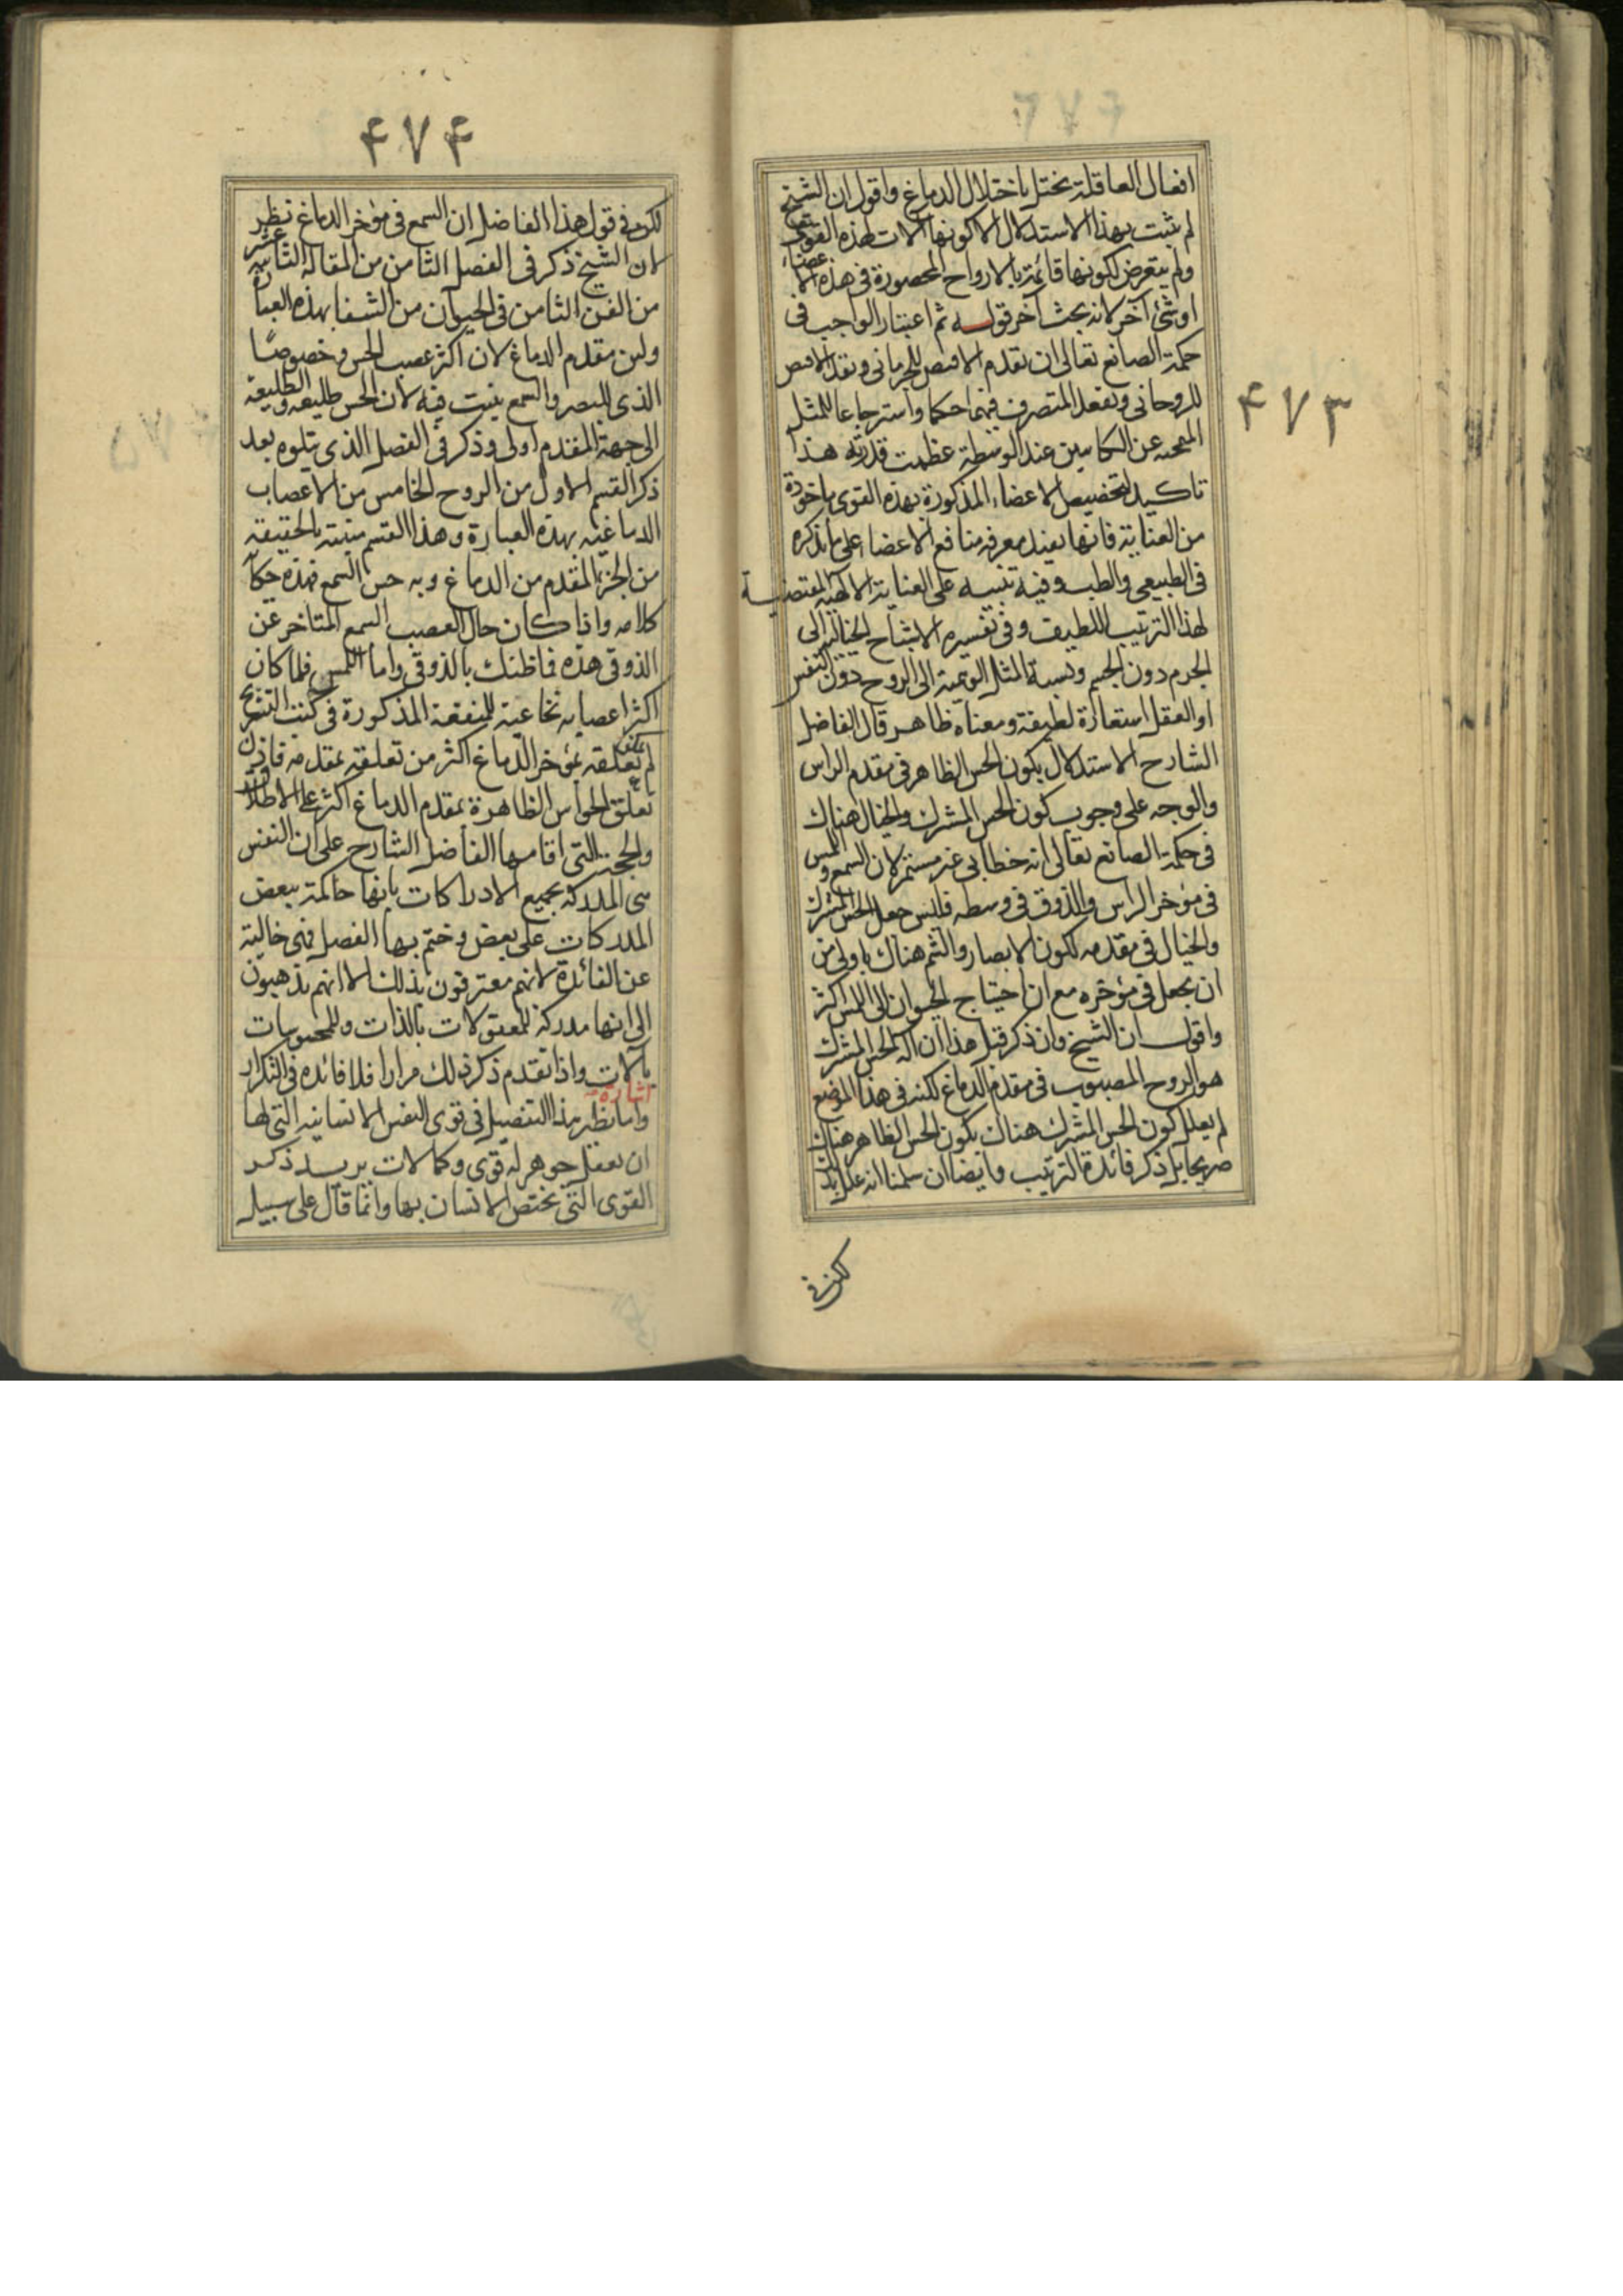 ۴۷۳
افعال العاقلة تختل باختلال الدماغ واقول ان الشيخ
لم يثبت بهذا الاستدلال الا كونها آلات لهذه القوى
ولم يتعرض لكونها قائمة بالارواح المحصورة فى هذه الاعضاء
او شئ آخر لانه بحث آخر قوله ثم اعتبار الواجب فى
حكمة الصانع تعالى ان تقدم الاقنص للجرمانى وتقعد الاقنص
للروحانى وتقعد المتصرف فيهما حكما واسترجاعا للمثل
المنمحية عن الجانبين عند الوسطة عظمت قدرته هذا
تاكيد لتخصيص الاعضاء المذكورة بهذه القوى ماخوذة
من العناية فانها يفيد معرفة منافع الاعضاء على ما يذكره
فى الطبيعى والطب وفيه تنبيه على العناية الالهية المقتضية
لهذا الترتيب اللطيف وفى تفسيره الاشباح الخيالية الى
الجرم دون الجسم ونسبة المثل الوهمية الى الروح دون النفس
او العقل استعارة لطيفة ومعناه ظاهر قال الفاضل
الشارح الاستدلال بكون الحس الظاهر فى مقدم الراس
والوجه على وجوب كون الحس المشترك والخيال هناك
فى حكمة الصانع تعالى انه خطابى غير مستمر لان السمع واللمس
فى مؤخر الراس والذوق فى وسطه فليس جعل الحس المشترك
والخيال فى مقدمه لكون الابصار والشم هناك باولى من
ان يجعل فى مؤخره مع ان احتياج الحيوان الى اللمس اكثر
واقول ان الشيخ وان ذكر قبل هذا ان آلة الحس المشترك
هو الروح المصبوب فى مقدم الدماغ لكنه فى هذا الموضع
لم يعلل كون الحس المشترك هناك بكون الحس الظاهر هناك
صريحا بل ذكر فائدة الترتيب وايضا ان سلمنا انه علل بذلك
لكن فى
۴۷۴
لكن فى قول هذا الفاضل ان السمع فى مؤخر الدماغ نظر
لان الشيخ ذكر فى الفصل الثامن من المقالة الثانية عشر
من الفن الثامن فى الحيوان من الشفا بهذه العبارة
ولين مقدم الدماغ لان اكثر عصب الحس وخصوصًا
الذى للبصر والسمع ينبت فيه لان الحس طليعة والطليعة
الى جهة المقدم اولى وذكر فى الفصل الذى يتلوه بعد
ذكر القسم الاول من الزوج الخامس من الاعصاب
الدماغية بهذه العبارة وهذا القسم منبته بالحقيقة
من الجزء المقدم من الدماغ وبه حس السمع فهذه حكاية
كلامه واذا كان حال العصب السمع المتاخر عن
الذوق هذه فما ظنك بالذوق واما اللمس فلما كان
اكثر اعصابه نخاعية للمنفعة المذكورة فى كتب التشريح
لم يكن تعلقه بمؤخر الدماغ اكثر من تعلقه بمقدمه فاذن
تعلق الحواس الظاهرة بمقدم الدماغ اكثر على الاطلاق
والحجة التى اقامها الفاضل الشارح على ان النفس
هى المدركة بجميع الادراكات بانها حاكمة ببعض
المدركات على بعض وختم بها الفصل فهى خالية
عن الفائدة لانهم معترفون بذلك الا انهم يذهبون
الى انها مدركة للمعقولات بالذات وللمحسوسات
بالآلات واذا تقدم ذكر ذلك مرارا فلا فائدة فى التكرار
اشارة
واما نظير هذا التفصيل فى قوى النفس الانسانية التى لها
ان تعقل جوهر له قوى وكمالات يريد ذكر
القوى التى تختص الانسان بها وانما قال على سبيل